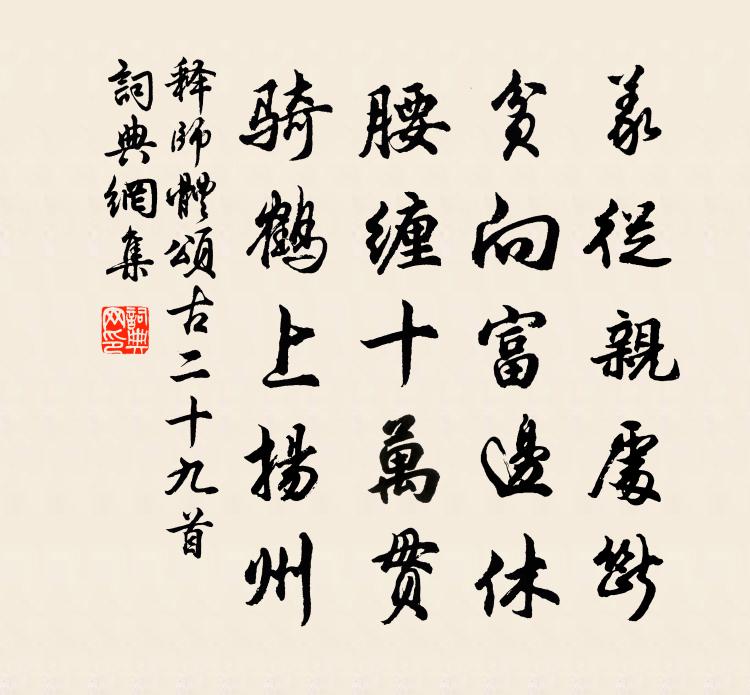 義從親處斷
貧向富邊休
腰纏十萬貫
騎鶴上揚州
释師體頌古二十九首
詞典網集
詞典網印